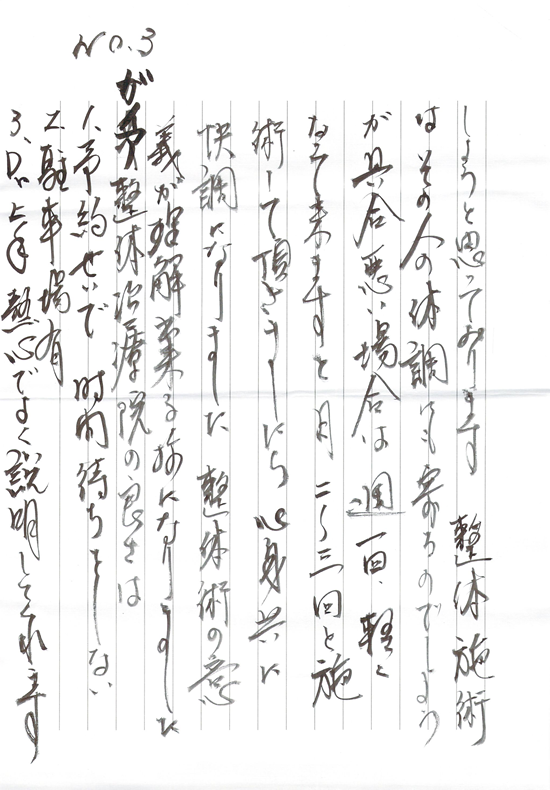 No.3
しようと思っております 整体施術
は その人の体調にも寄るのでしょう
が具合悪い場合は 週一回、軽く
なって来ますと 月 二〜三回と施
術して頂きましたら 心身共に
快調になりました 整体術の意
義が理解出来る様になりました
が 整体治療院の良さは
1、予約せいで 時間待ちをしない
2、駐車場有
3、Dr. 上手 熱心でよく説明してくれます